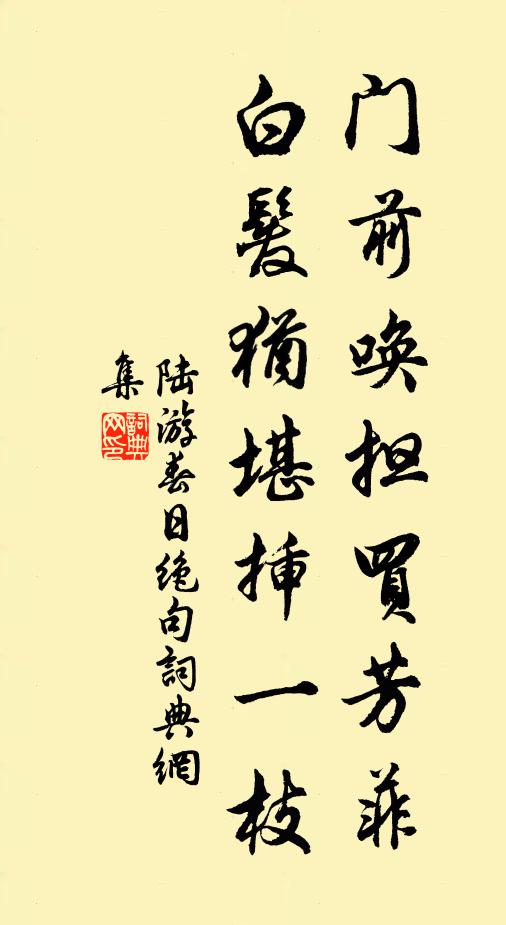 门前唤担買芳菲
白髮猶堪挿一枝
陆游春日绝句詞典網
集
詞典
网印